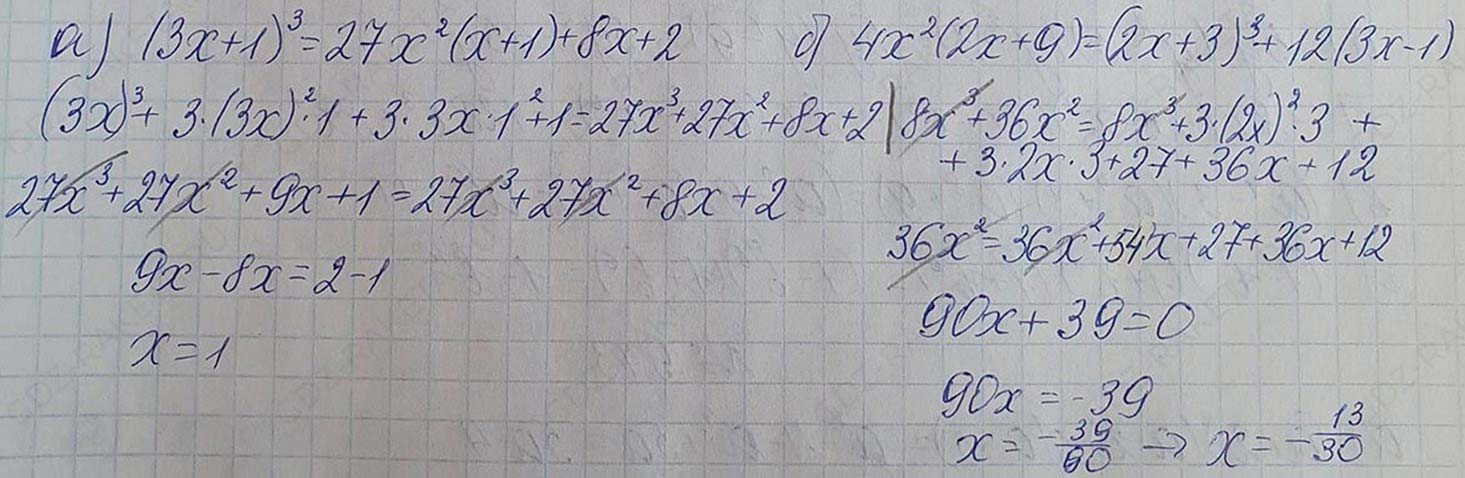 а) (3x+1)³=27x²(x+1)+8x+2
(3x)³+3·(3x)²·1+3·3x·1²+1=27x³+27x²+8x+2
27x³+27x²+9x+1=27x³+27x²+8x+2
9x-8x=2-1
x=1
б) 4x²(2x+9)=(2x+3)³+12(3x-1)
8x³+36x²=8x³+3·(2x)²·3+
+3·2x·3+27+36x+12
36x²=36x²+54x+27+36x+12
90x+39=0
90x=-39
x=-39/90→x=-13/30